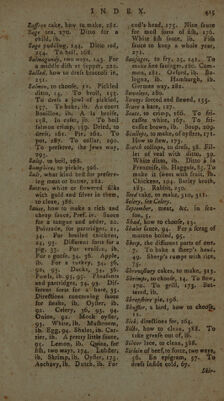 I N D E X. 415
Saffron cake, how to make, 282.
Sage tea, 270. Ditto for a
child, ib.
Sago pudding, 244. Ditto red,
254. To boil, 268.
Salmagundy, two ways, 143. For
a middle dish at supper, 222.
Sallad, how to dress broccoli in,
221.
Salmon, to choose, 21. Pickled
ditto, 14. To broil, 155.
To dress a jowl of pickled,
157. To bake, ib. Au court
Bouillon, ib. A la braise,
158. In cases, ib. To boil
salmon crimp, 159. Dried, to
dress, 161. Pie, 261. To
pot, 287. To collar, 290.
To preserve, the Jews way,
293.
Salop, to boil, 268.
Samphire, to pickle, 306.
Salt, what kind best for preserv-
ing meat or butter, 282.
Sattins, white or flowered silks
with gold and silver in them,
to clean, 386.
Sauce, how to make a rich and
cheap sauce, Pref. iv. Sauce
for a tongue and udder, 22.
Poivrade, for partridges, 11,
34. For boiled chickens,
241, 93. Different sorts for a
pig, 33. For venison, ib.
For a goose, 34, 36. Apple,
ib. For a turkey, 34, 36,
90, 92. Ducks, 34, 36.
Fowls, ib. 92, 91. Pheasants
and partridges, 34, 93. Dif-
ferent sorts for a hare, 35.
Directions concerning sauce
for steaks, ib. Oyster, ib.
92. Celery, 36, 93, 94.
Onion, 92. Mock oyster,
93. White, ib. Mushroom,
ib. Egg, 94. Shalot, ib. Car-
rier, ib. A pretty little sauce,
95. Lemon, ib. Quin, for
fish, two ways, 174. Lobster,
ib. Shrimp, ib. Oyster, 175.
Anchovy, ib. Dutch, ib. For
cod's head, 175. Nice sauce
for most sorts of fish, 176.
White fish sauce, ib. Fish
sauce to keep a whole year,
271.
Sausages, to fry, 141, 142. To
make fine sausages, 280. Com-
mon, 281. Oxford, ib. Bo-
logna, ib. Hamburgh, ib.
German way, 282.
Saveloys, 280.
Savoys forced and stewed, 135.
Scare a hare, 127.
Scate, to crimp, 166. To fri-
cassee white, 167. To fri-
cassee brown, ib. Soup, 209.
Scollops, to make, of oysters, 171.
How to stew, 173.
Scotch collops, to dress, 58. Fil-
let of veal with ditto, 59.
White ditto, ib. Ditto à la
Françoise, ib. Haggass, 72. To
make it sweet with fruit, ib.
Chickens, 84. Barley broth,
183. Rabbit, 122.
Seed cake, to make, 310, 311.
Selery, see Celery.
September, meat, &c. in sea-
son, 5.
Shad, how to choose, 23.
Shalot sauce, 94. For a scrag of
mutton boiled, 95.
Sheep, the different parts of one,
7. To bake a sheep's head,
49. Sheep's rumps with rice,
76.
Shrewsbury cakes, to make, 313.
Shrimps, to choose, 24. To stew,
170. To grill, 173. But-
tered, ib.
Shropshire pie, 196.
Shuffler, a bird, how to choose,
11.
Sick, directions for, 264.
Silks, how to clean, 388. To
take grease out of, ib.
Silver lace, to clean, 388.
Sirloin of beef, to force, two ways,
56. En epigram, 57. To
dress inside cold, 67.
Skir-